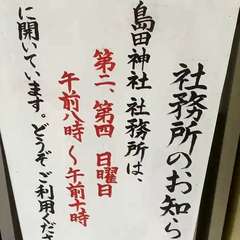 社務所のお知ら
島田神社 社務所は、
第二、第四 日曜日
午前八時〜午前十時
に開いています。どうぞご利用くださ